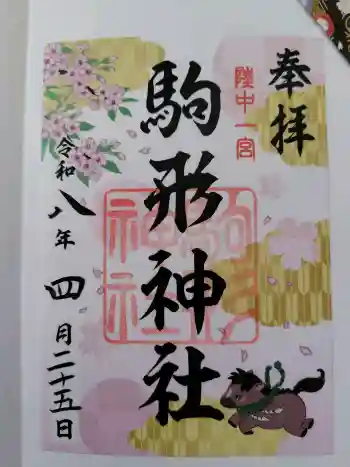 奉拝
陸中一宮
駒形神社
駒形
神社
令和八年四月二十五日